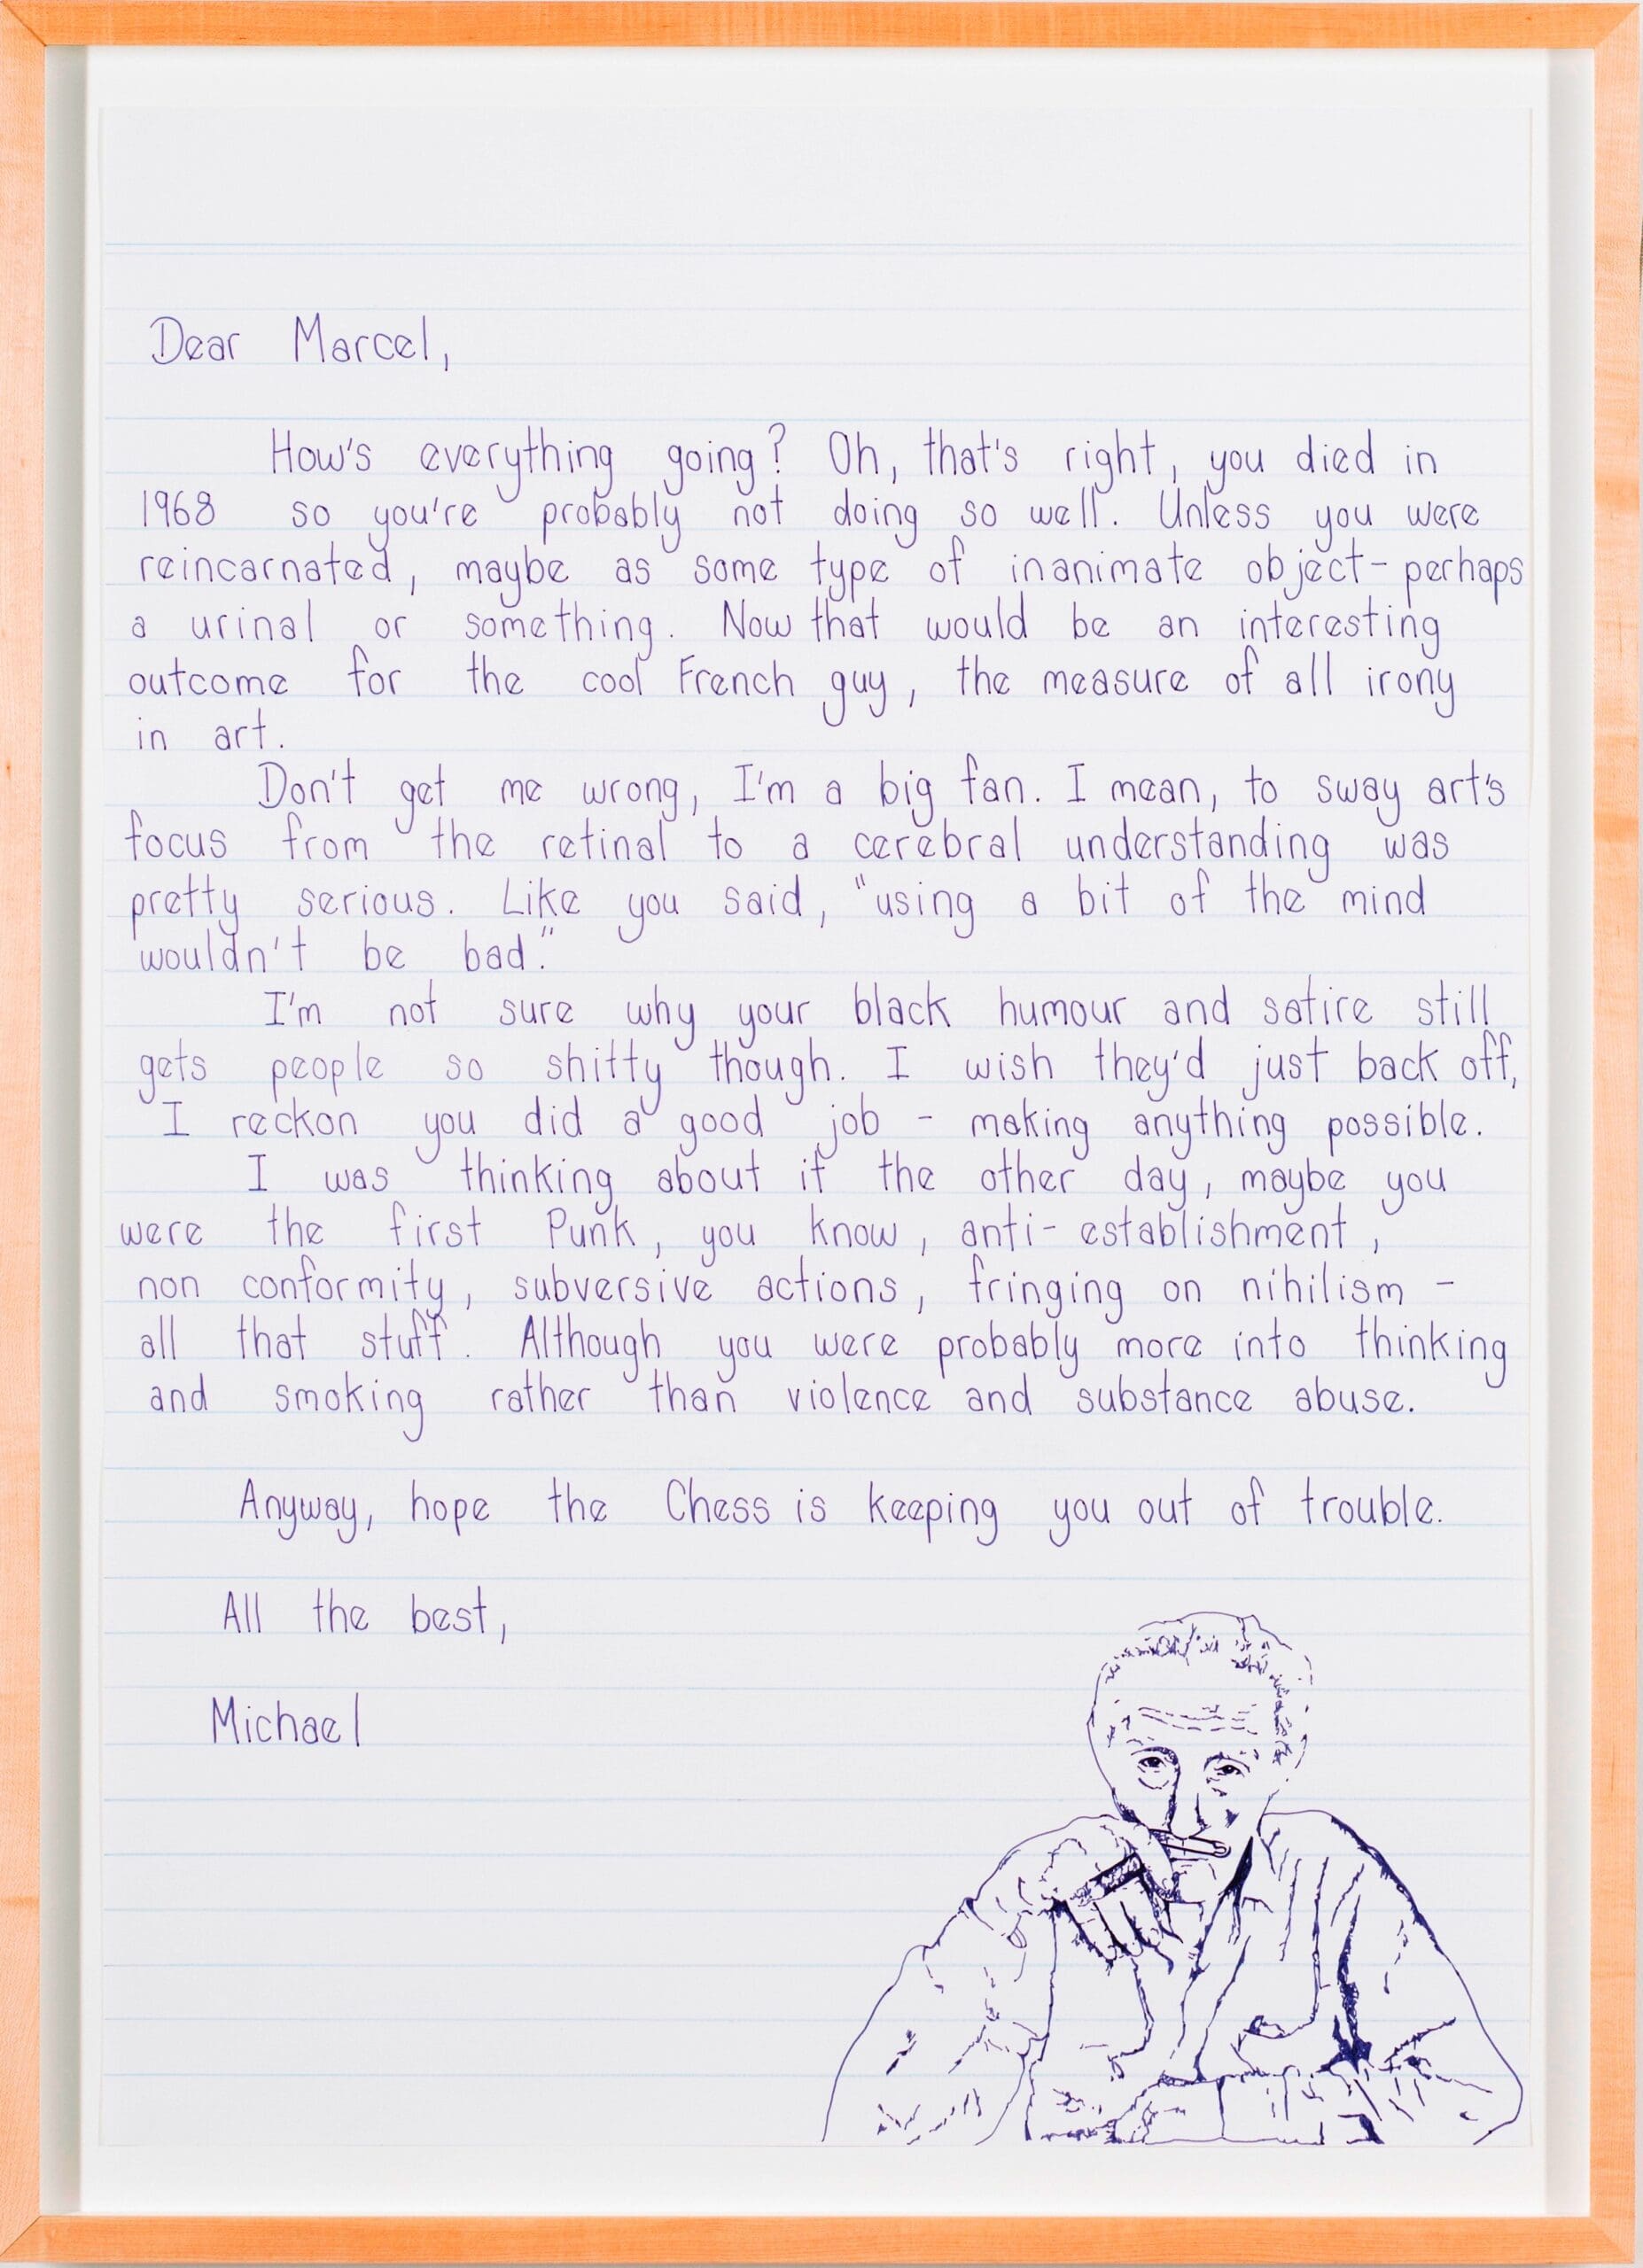 Dear Marcel,
How's everything going? Oh, that's right, you died in
1968 so you're probably not doing so well. Unless you were
reincarnated, maybe as some type of inanimate object- perhaps
a urinal or something. Now that would be an interesting
outcome for the cool French guy, the measure of all irony
in art.
Don't get me wrong, I'm a big fan. I mean, to sway art's
focus from the retinal to a cerebral understanding was
pretty serious. Like you said, "using a bit of the mind
wouldn't be bad."
I'm not sure why your black humour and satire still
gets people so shitty though. I wish they'd just back off,
I reckon you did a good job - making anything possible.
I was thinking about it the other day, maybe you
were the first Punk, you know, anti- establishment,
non conformity, subversive actions, fringing on nihilism -
all that stuff. Although you were probably more into thinking
and smoking rather than violence and substance abuse.
Anyway, hope the Chess is keeping you out of trouble.
All the best,
Michael